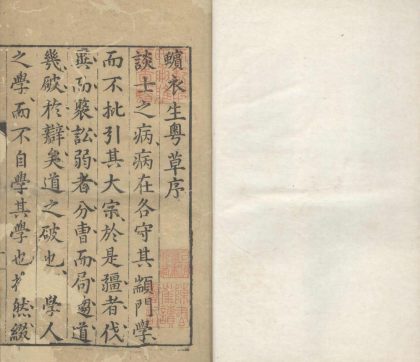 蠙衣生粤草序
談士之病病在各守其顓門學
而不批引其大宗於是彊者伐
異而褻訟弱者分曹而局𨗿道
幾破於辯矣道之破也學人
之學而不自學其學也才然綴